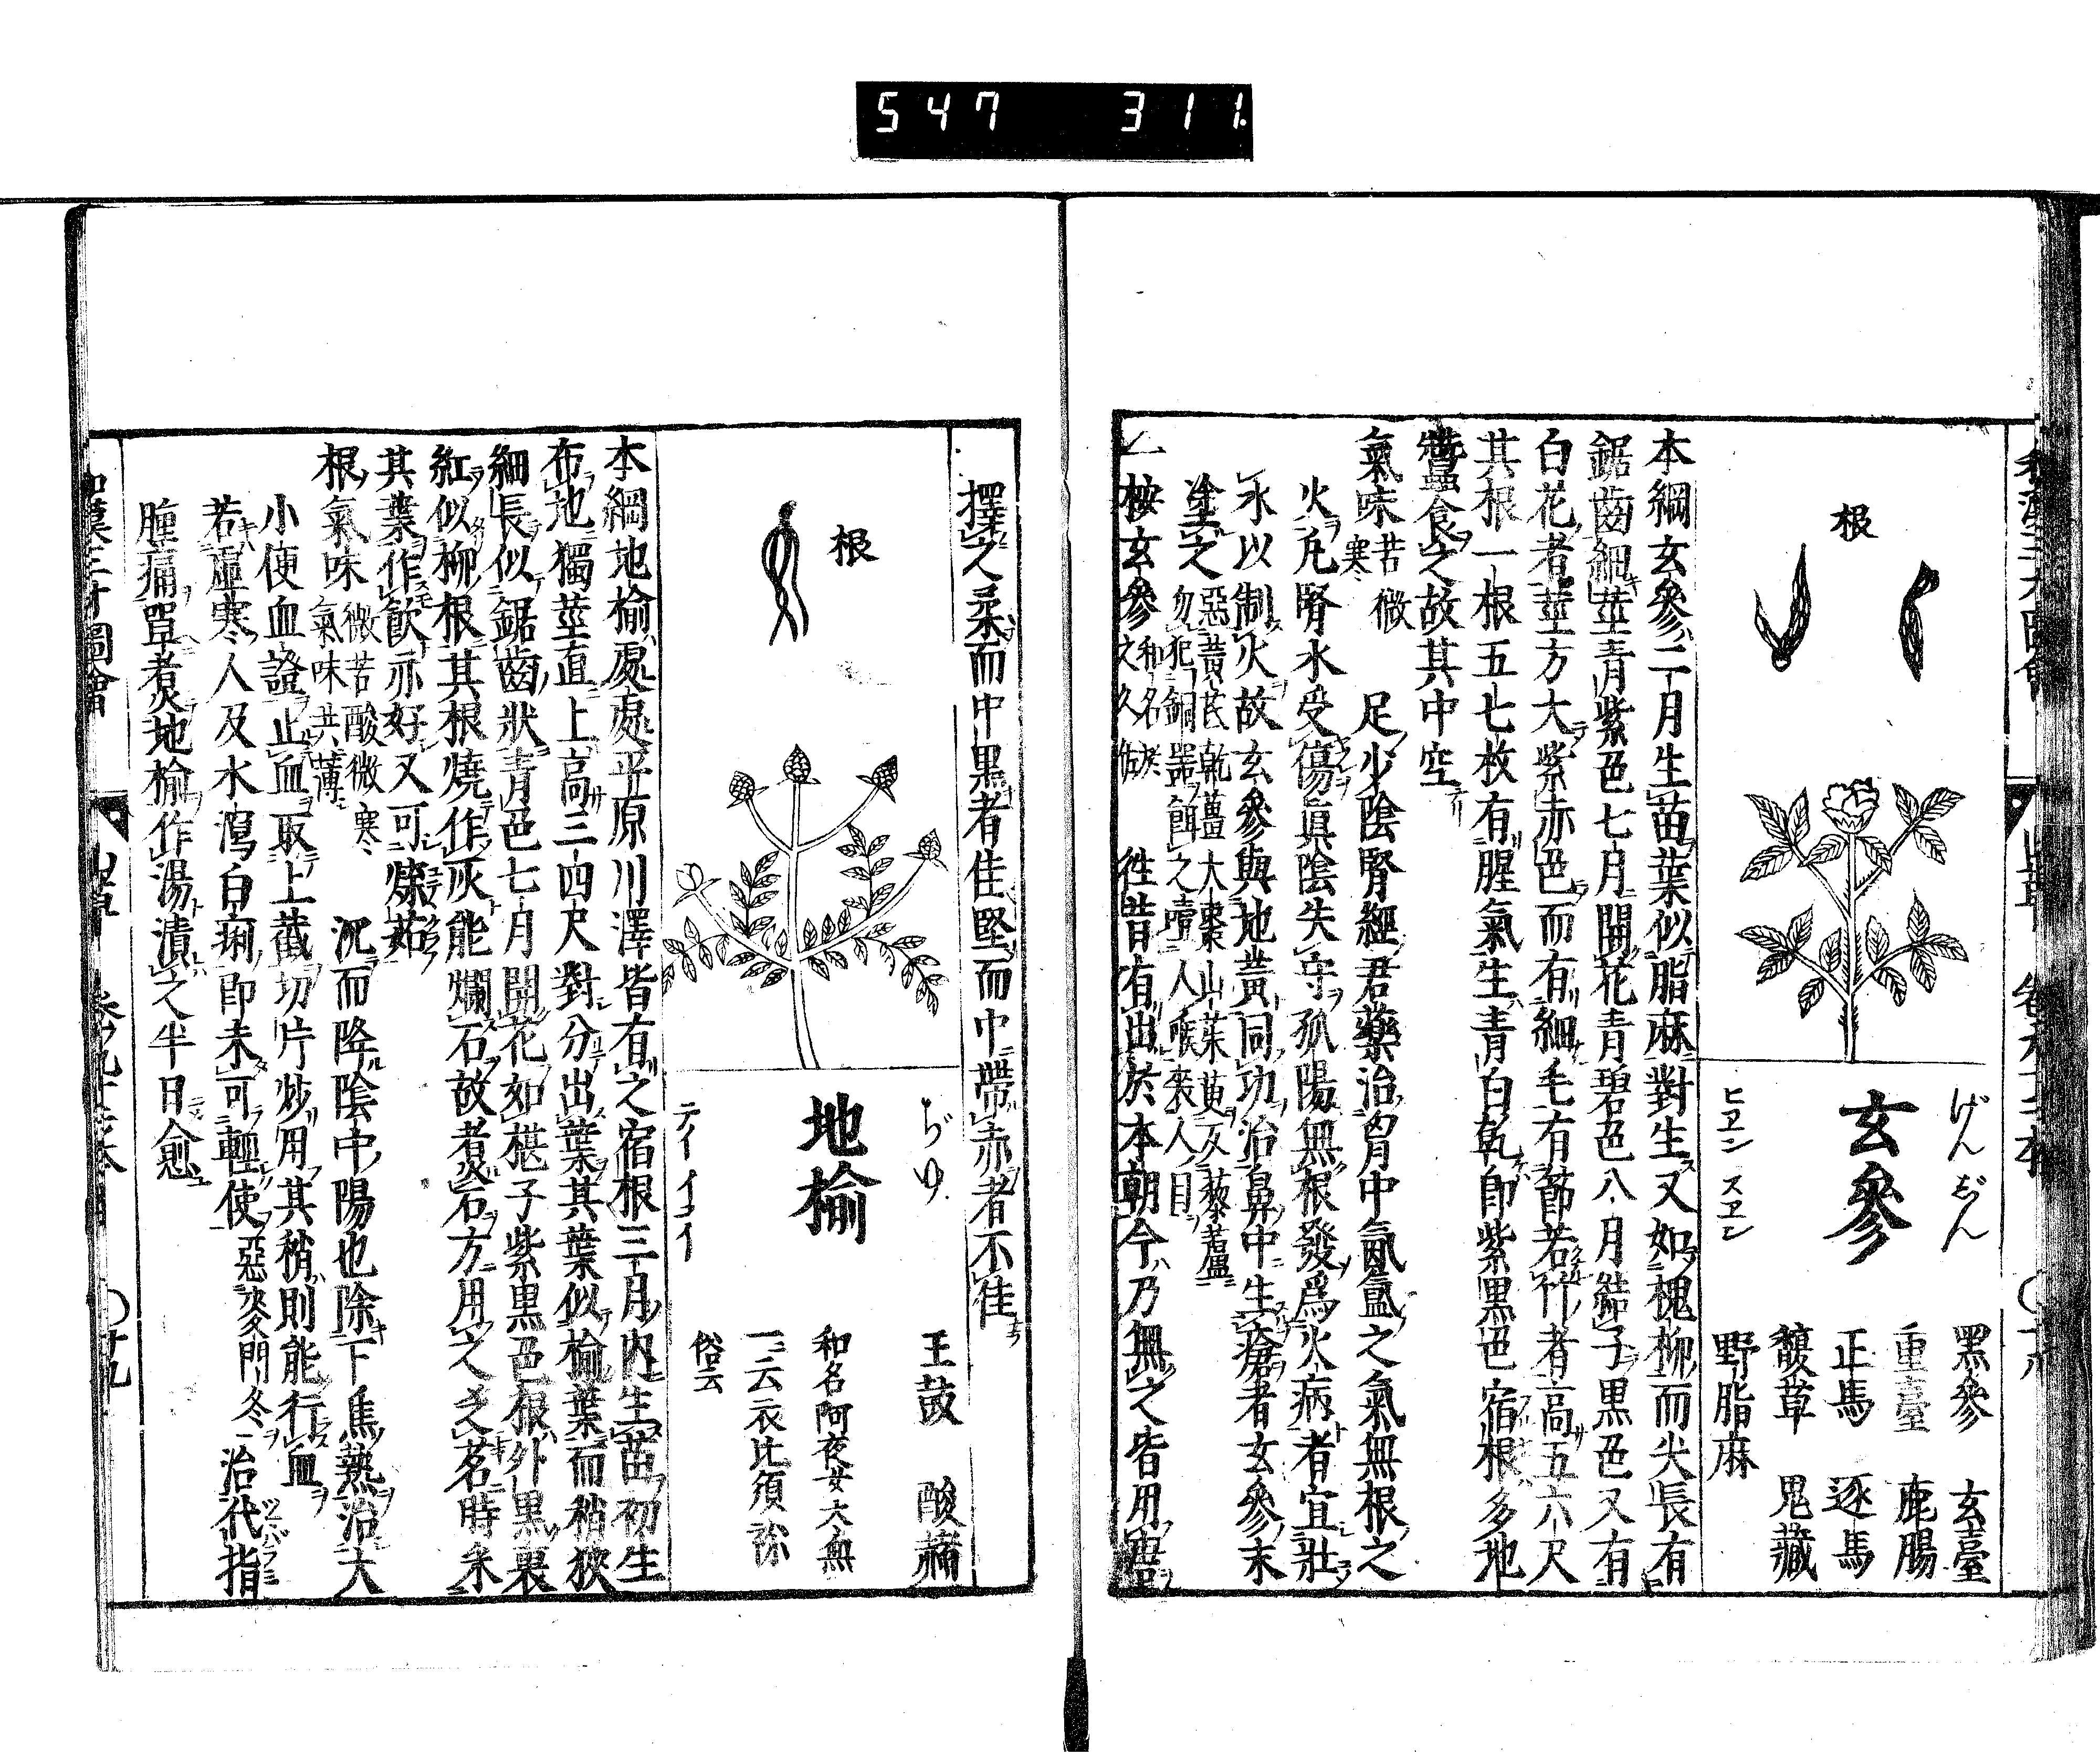 547 311
根
げんじん
玄參
ヒヱン スヱン
黑參 玄臺
重臺 鹿腸
正馬 逐馬
馥草 鬼藏
野脂麻
本綱玄參二月生苗葉似脂麻對生又如槐柳而尖長有
鋸齒細莖青紫色七月開花青碧色八月結子黑色又有
白花者莖方大紫赤色而有細毛有節若竹者高五六尺
其根一根五七枚有腥氣生青白乾即紫黑色宿根多地
蠶食之故其中空
氣味苦微寒 足少陰腎經君藥治胷中氤氲之氣無根之
火凡腎水受傷眞陰失守孤陽無根發爲火病者宜壯
水以制火故玄參與地黃同功治鼻中生瘡者玄參末
塗之惡黃芪乾薑大棗山茱萸反藜蘆
勿犯銅器餌之噎人喉喪人目
△按玄參和名於之久佐 徃昔有出於本朝今乃無之皆用唐
擇之柔而中黑者佳堅而中帶赤者不佳
根
ぢゆ
地榆
テイ イユイ
玉豉 酸赭
和名阿夜女太無
一云衣比須祢
俗云
本綱地榆處處平原川澤皆有之宿根三月內生苗初生
布地獨莖直上高三四尺對分出葉其葉似榆葉而稍狹
細長似鋸齒狀青色七月開花如椹子紫黑色根外黑裏
紅似柳根其根燒作灰能爛石故煮石方用之㐅茗時采
其葉作飮亦好又可煠茹
根氣味微苦酸微寒氣味共薄 沉而降陰中陽也除下焦熱治大
小便血證止血取上截切片炒用其稍則能行血
若虛寒人及水瀉白痢即未可輕使惡麥門冬 治代指
腫痛單煮地榆作湯漬之半日愈
和漢三才圖會
山草